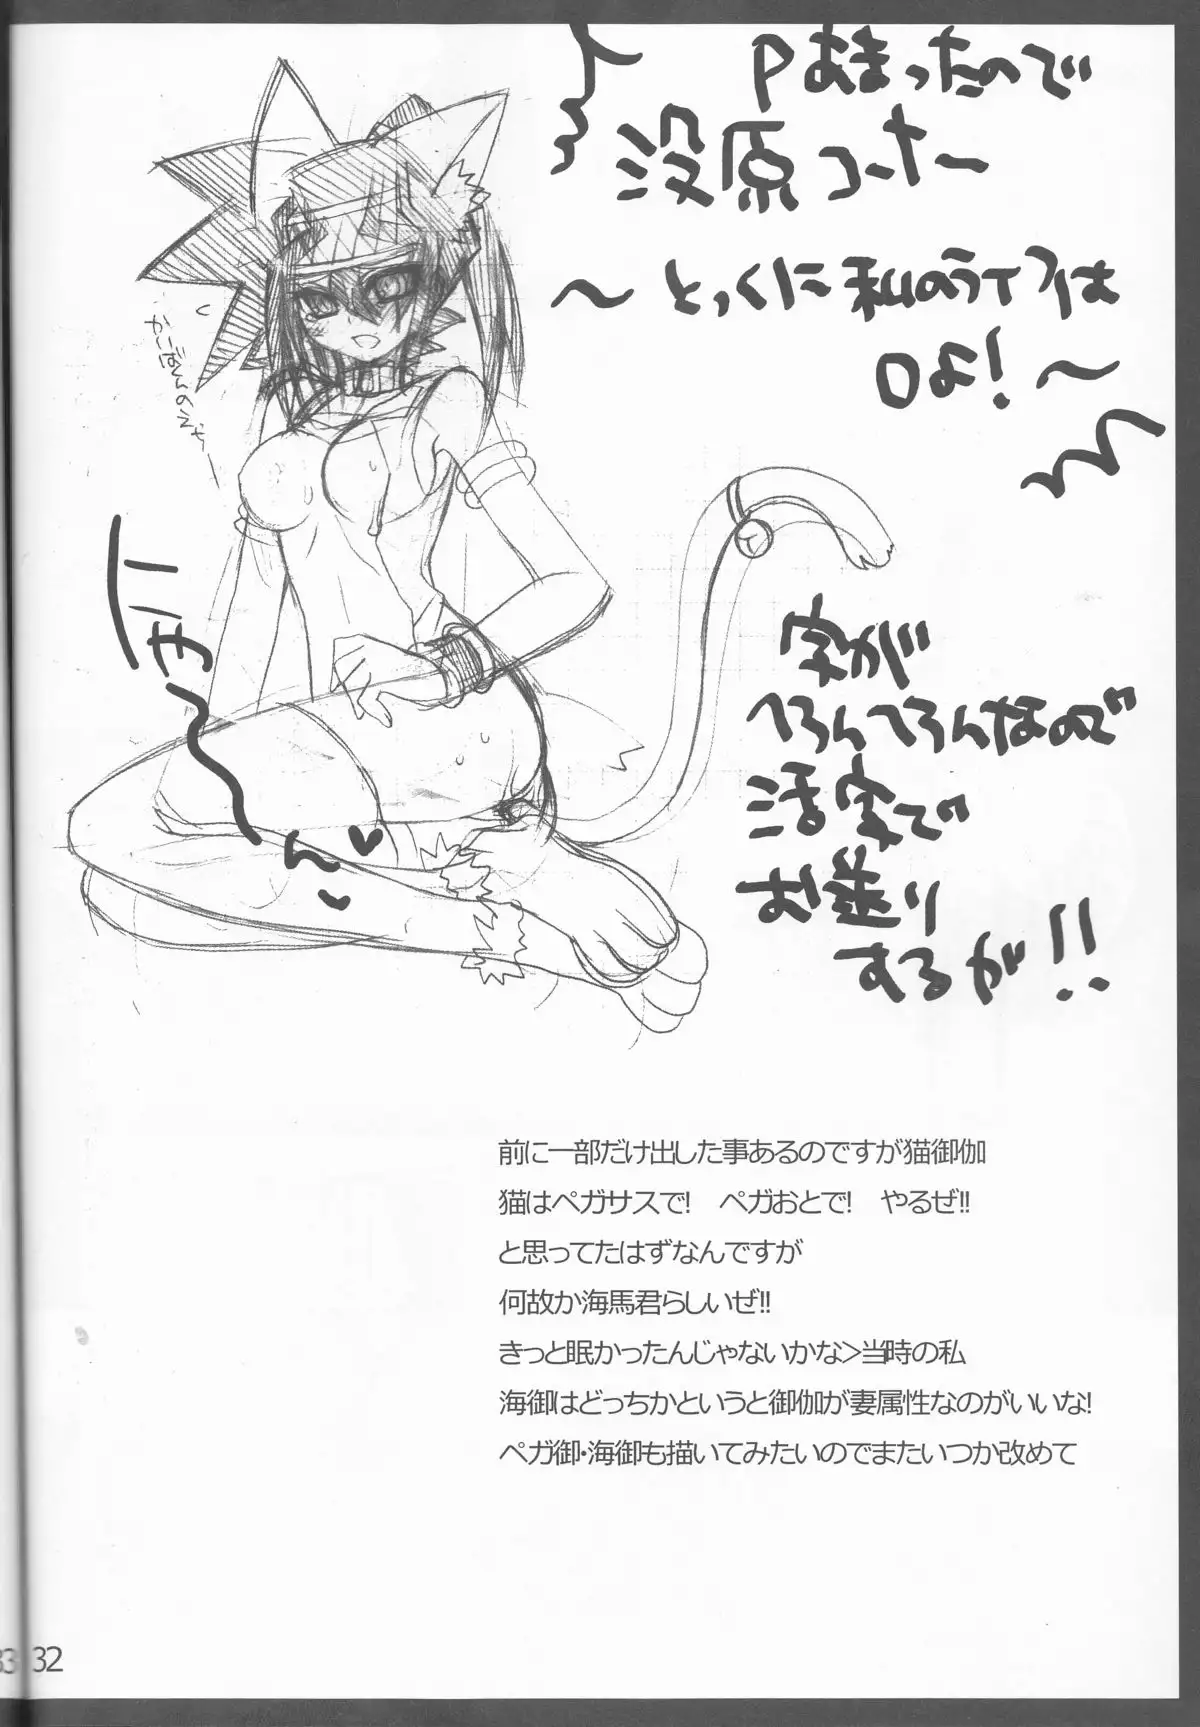 Pあまったので
没原コーナー
〜とっくに私のライフは
0よ!〜
かいばくんのえっちー
にゃ〜ん♥
字が
へろんへろんなので
活字で
お送り
するが!!
前に一部だけ出した事あるのですが猫御伽
猫はペガサスで! ペガおとで! やるぜ!!
と思ってたはずなんですが
何故か海馬君らしいぜ!!
きっと眠かったんじゃないかな>当時の私
海御はどっちかというと御伽が妻属性なのがいいな!
ペガ御・海御も描いてみたいのでまたいつか改めて
32